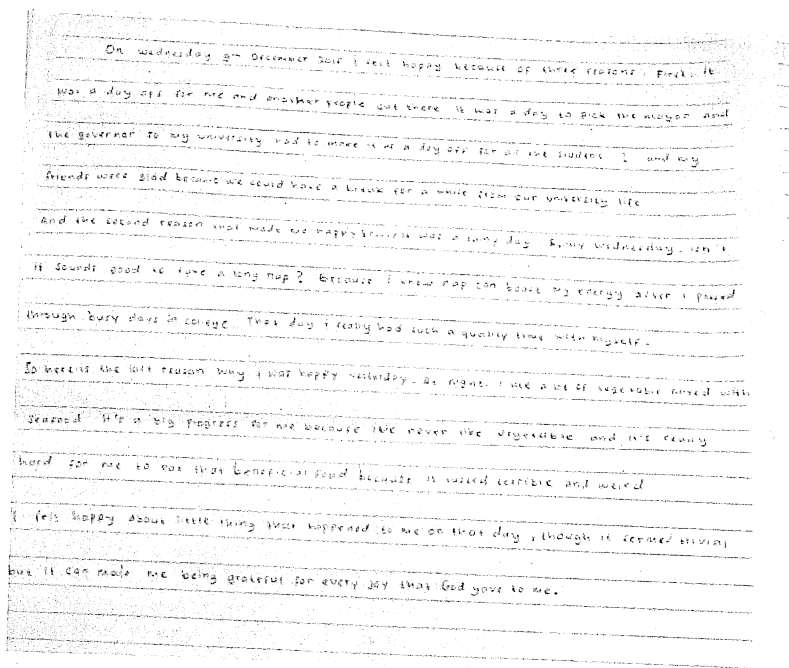 On wednesday 9th December 2015 I felt happy because of three reasons. First, it
was a day off for me and another people out there it was a day to pick the mayor and
the governor so my university had to make it as a day off for all the student I and my
friends were glad because we could have a break for a while from our university life
And the second reason that made me happy it was a day wednesday. isn't
it sounds good to take a long nap? Because I knew nap can boost my energy after I passed
through busy days in college. That day I really had such a quality time with myself.
So here is the last reason why I was happy yesterday. At night, I ate a lot of vegetable mixed with
seafood it's a big progress for me because I've never like vegetable and it's really
hard for me to eat that beneficial food because it tasted terrible and weird
I felt happy about little thing that happened to me on that day, though it seemed trivial
but it can made me being grateful for every joy that God gave to me.